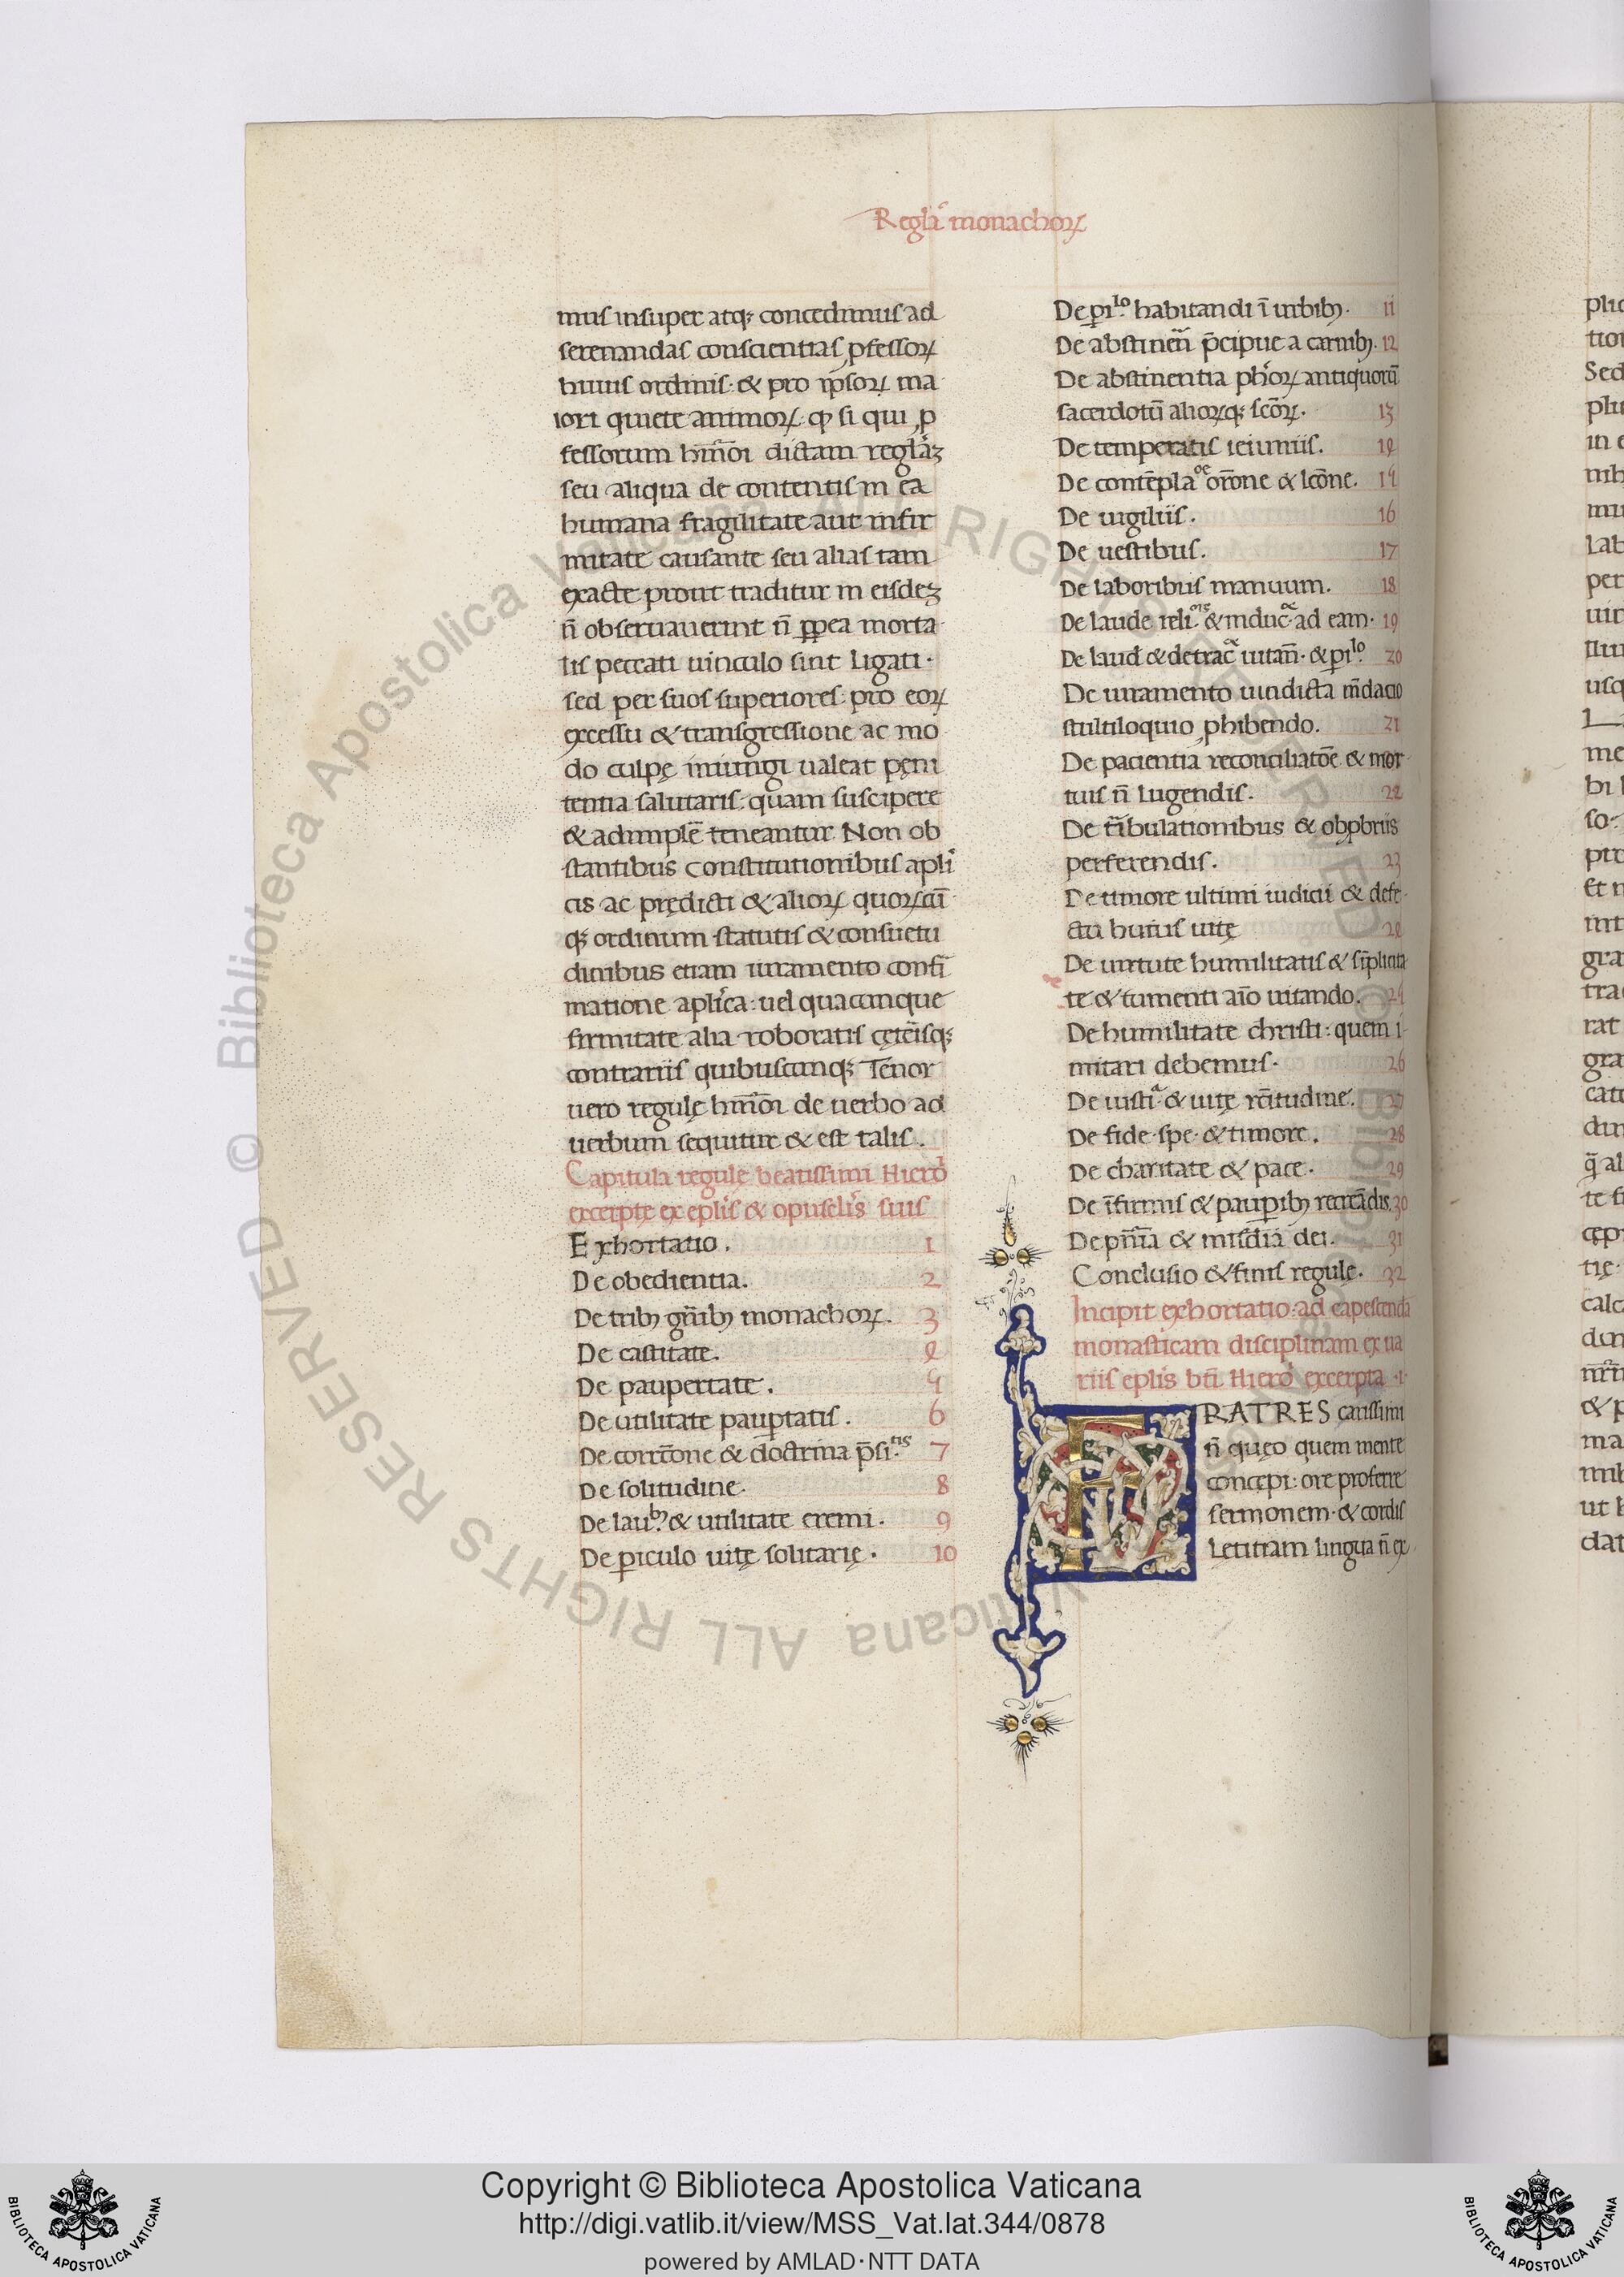 Reglā monachoꝝ
mus insuper atqꝫ concedimus ad
serenandas conscientias ꝓfessoꝝ
huius ordinis· & pro ip̄soꝝ ma
iori quiete animoꝝ ꝙ si qui ꝓ
fessorum hm̄oi dictam reglāꝫ
seu aliqua de contentis in ea
humana fragilitate aut infir
mitate causante seu alias tam
exacte prout traditur in eisdeꝫ
n̄ obseruauerint n̄ ꝓpea morta
lis peccati uinculo sint ligati·
sed per suos superiores pro eoꝝ
excessu & transgressione ac mo
do culpę iniungi ualeat pęni
tentia salutaris: quam suscipere
& adimplē teneantur Non ob
stantibus constitutionibus apli
cis ac prędicti & alioꝝ quoꝝcū
qꝫ ordinum statutis & consuetu
dinibus etiam iuramento confi
matione apl̄ica: uel quacunque
firmitate alia roboratis cęteisqꝫ
contrariis quibuscunqꝫ Tenor
uero regulę hm̄oi de uerbo ad
uerbum sequitur & est talis.
Capitula regule beatissimi Hiero
excerpte ex epl̄is & opusclīs suis
Exhortatio. 1
De obedientia. 2
De tribꝫ gn̄ibꝫ monachoꝝ. 3
De castitate. 4
De paupertate. 5
De utilitate pauꝑtatis. 6
De correc̄one & doctrina p̄si.tis 7
De solitudine. 8
De lau.bꝫ & utilitate eremi. 9
De ꝑiculo uitę solitarię. 10
De ꝑi.lo habitandi ī urbibꝫ. 11
De abstinen̄ p̄cipue a carnibꝫ. 12
De abstinentia ph̄oꝝ antiquorū
sacerdotū alioꝝqꝫ scōꝝ. 13
De temperatis ieiuniis. 14
De contēplaoe orōne & lcōne. 15
De uigiliis. 16
De uestibus. 17
De laboribus manuum. 18
De laude reli.ois & induc.oe ad eam. 19
De laud & detrac̄ uitan̄. & ꝑi.lo 20
De iuramento uindicta m̄dacio
stultiloquio ꝓhibendo. 21
De pacientia reconciliatōe & mor
tuis n̄ lugendis. 22
De tībulationibus & obꝓbriis
perferendis. 23
De timore ultimi iudicii & defe
ctu huius uitę 24
De uirtute humilitatis & sīplicita
te & tumenti aīo uitando. 25
De humilitate christi: quem i
mitari debemus. 26
De iusti.a & uite rc̄titudine. 27
De fide· spe· & timore. 28
De charitate & pace. 29
De īfirmis & pauꝑibꝫ recreādis. 30
De pn̄ia & misdīa dei. 31
Conclusio & finis regulę. 32
Incipit exhortatio: ad capescenda
monasticam disciplinam ex ua
riis eplīs bt̄i Hiero excerpta 1
FRATRES carissimi
n̄ queo quem mente
concępi: ore proferre
sermonem· & cordis
Letitiam lingua n̄ ex
Copyright © Biblioteca Apostolica Vaticana
http://digi.vatlib.it/view/MSS_Vat.lat.344/0878
powered by AMLAD·NTT DATA
BIBLIOTECA APOSTOLICA VATICANA
BIBLIOTECA APOSTOLICA VATICANA
© Biblioteca Apostolica Vaticana ALL RIGHTS RESERVED
© Biblioteca Apostolica Vaticana ALL RIGHTS RESERVED